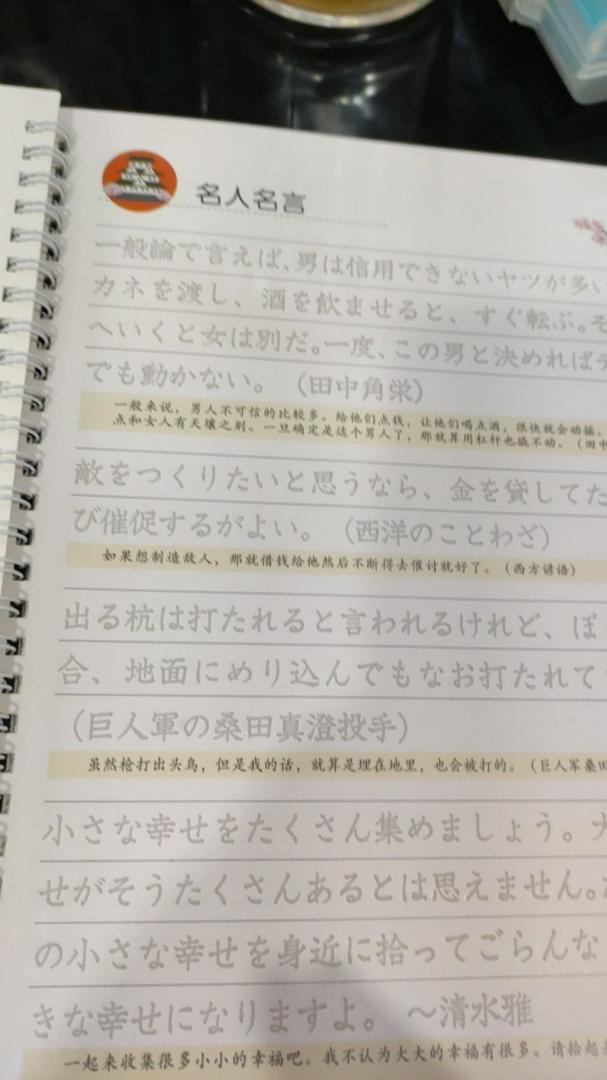 名人名言
一般論で言えば、男は信用できないヤツが多い
カネを渡し、酒を飲ませると、すぐ転ぶ。そ
へいくと女は別だ。一度、この男と決めればテ
でも動かない。（田中角栄）
一般来说，男人不可信的比较多。给他们点钱，让他们喝点酒，很快就会动摇。
点和女人有天壤之别。一旦确定是这个男人了，那就算用杠杆也撬不动。（田中
敵をつくりたいと思うなら、金を貸してた
び催促するがよい。（西洋のことわざ）
如果想制造敌人，那就借钱给他然后不断得去催讨就好了。（西方谚语）
出る杭は打たれると言われるけれど、ぼ
合、地面にめり込んでもなお打たれて
（巨人軍の桑田真澄投手）
虽然枪打出头鸟，但是我的话，就算是埋在地里，也会被打的。（巨人军桑田
小さな幸せをたくさん集めましょう。大
せがそうたくさんあるとは思えません。
の小さな幸せを身近に拾ってごらんな
きな幸せになりますよ。～清水雅
一起来收集很多小小的幸福吧。我不认为大大的幸福有很多。请拾起